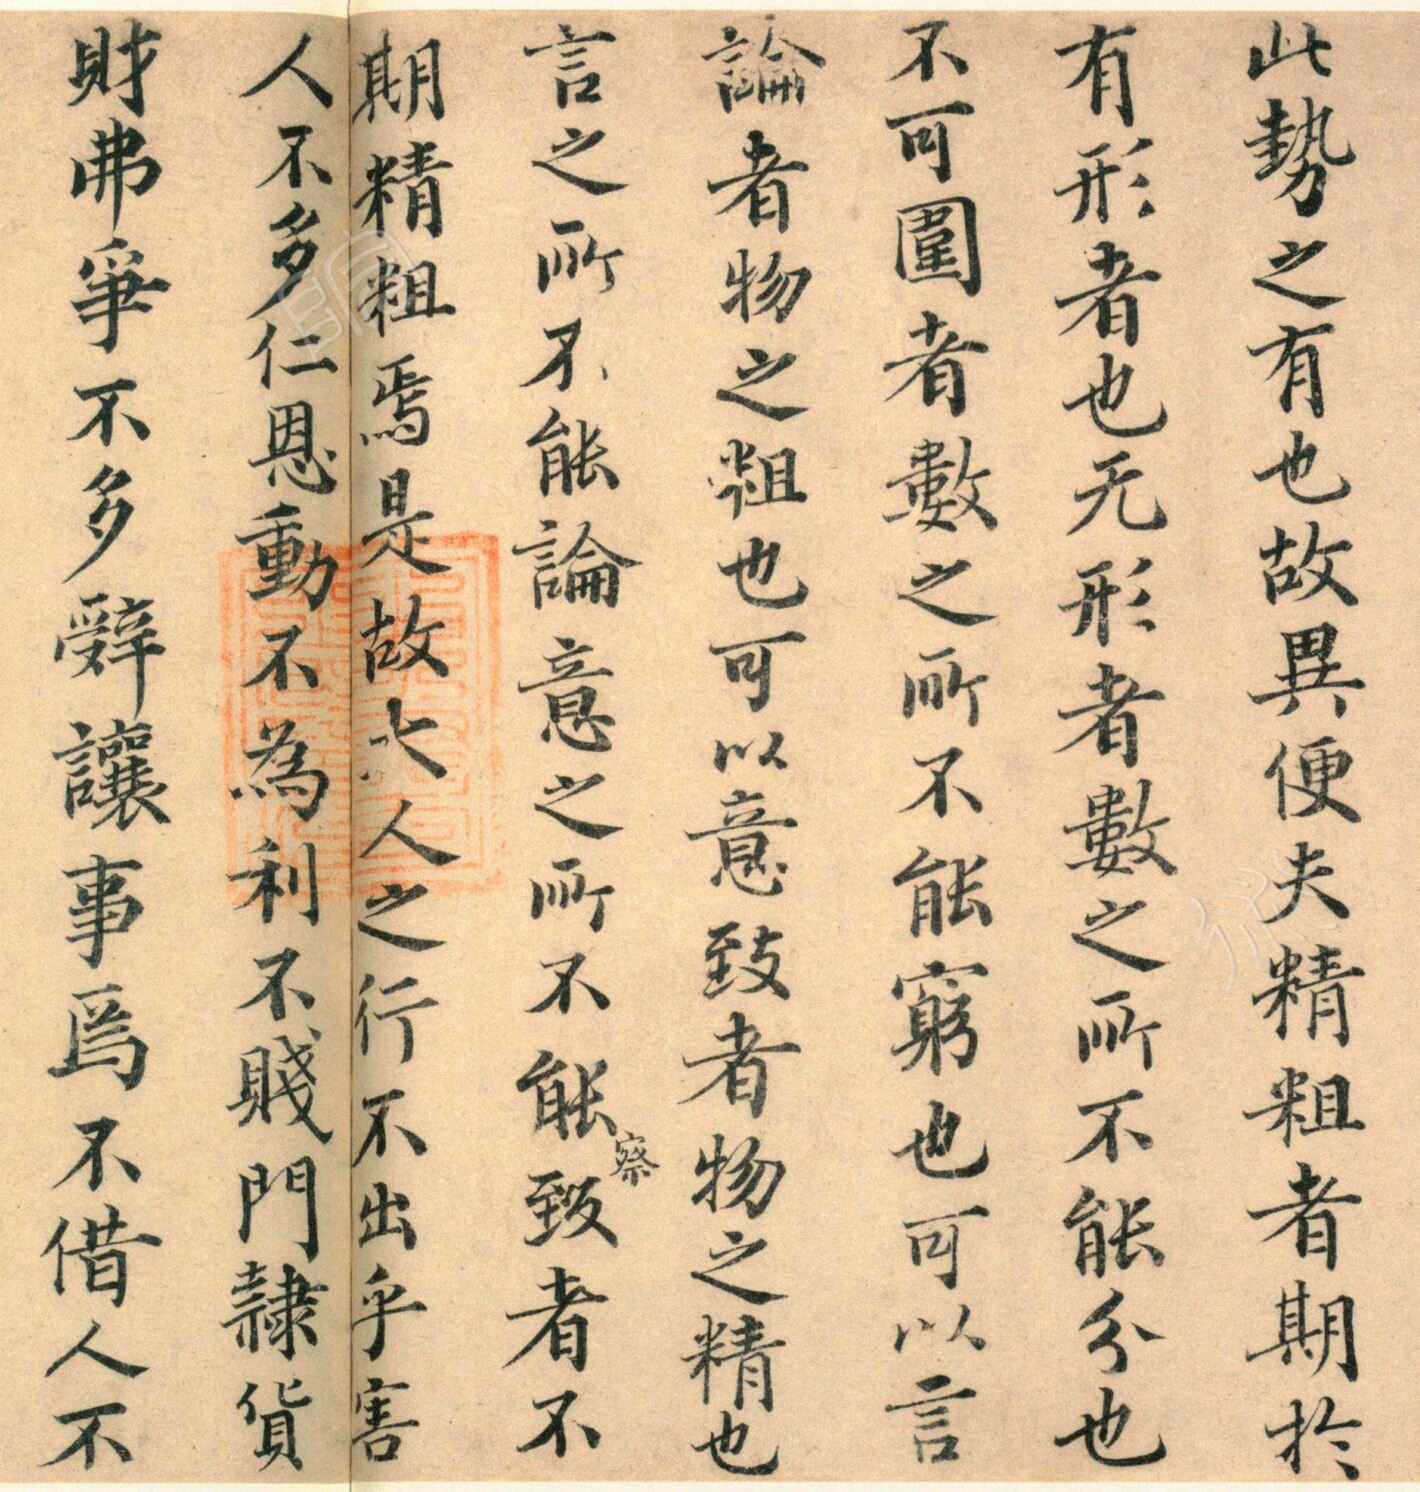 此勢之有也故異便夫精粗者期於
有形者也无形者數之所不能分也
不可圍者數之所不能窮也可以言
論者物之粗也可以意致者物之精也
言之所不能論意之所不能察致者不
期精粗焉是故大人之行不出乎害
人不多仁恩動不為利不賤門隷貨
財弗爭不多辭讓事焉不借人不